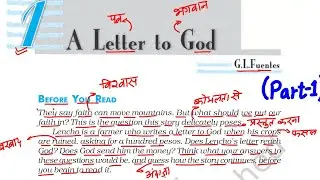 1
पत्र
भगवान
A Letter to God
G.L.Fuentes
विश्वास
BEFORE YOU READ
कोमलता से
(Part-1)
They say faith can move mountains. But what should we put our
faith in? This is the question this story delicately poses.
प्रस्तुत करना
Lencho is a farmer who writes a letter to God when his crops
फसल
are ruined, asking for a hundred pesos. Does Lencho's letter reach
God? Does God send him the money? Think what your answers to
these questions would be, and guess how the story continues, before
you begin to read it.